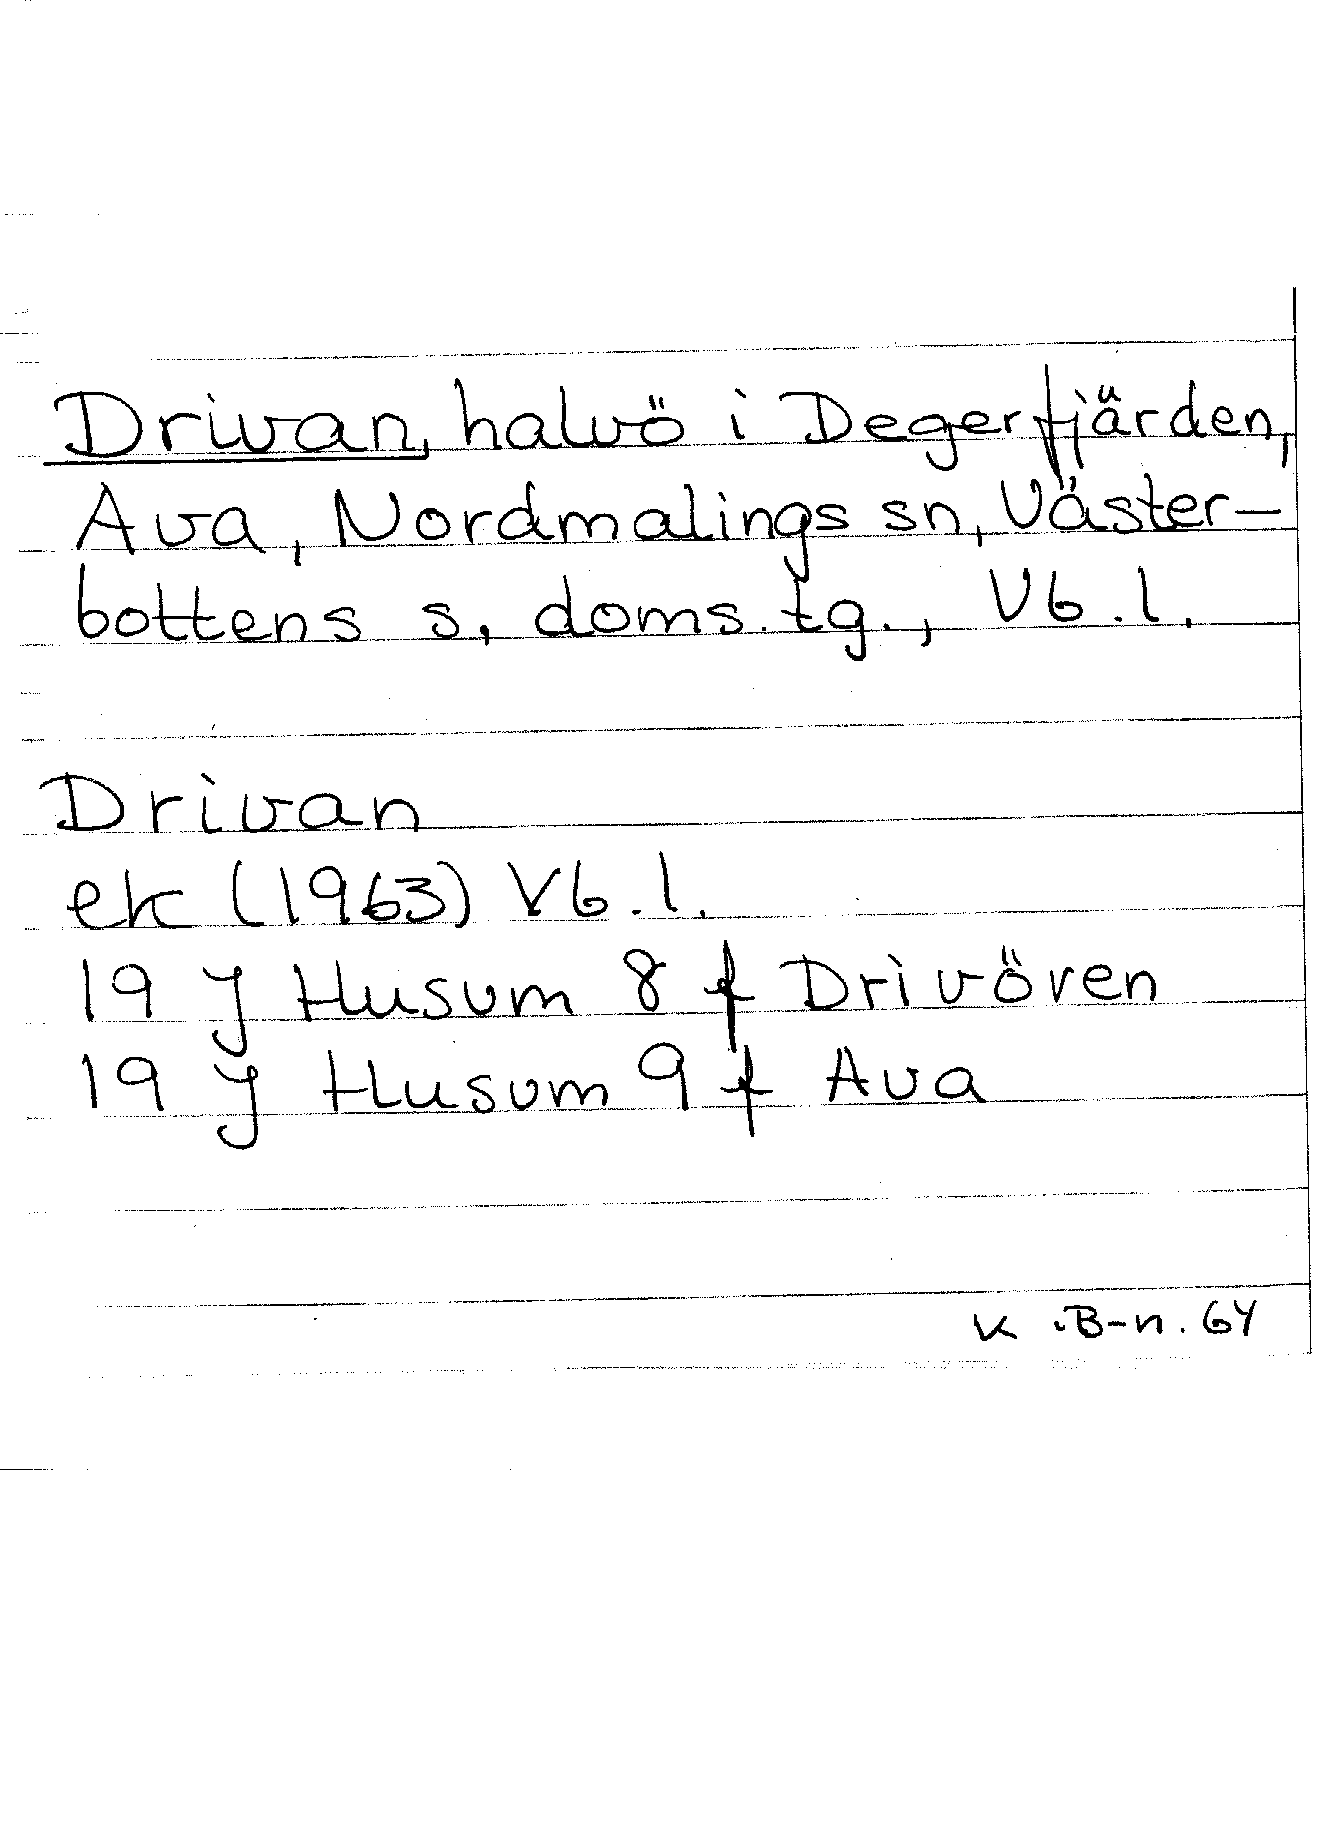 Drivan, halvö i Degerfjärden,
Ava, Nordmalings sn, Väster-
bottens s. doms.tg., Vb.l.
Drivan
ek (1963) Vb.l.
19 J Husum 8 f Drivören
19 J Husum 9 f Ava
K .B-n. 64